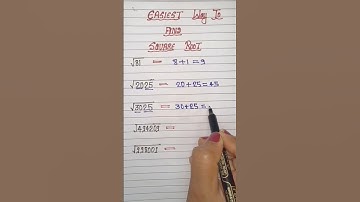 EASIEST Way To
FIND
SQUARE ROOT
√81 — 8+1=9
√2025 — 20+25=45
√3025 — 30+25=
√494209 =
√998001 =